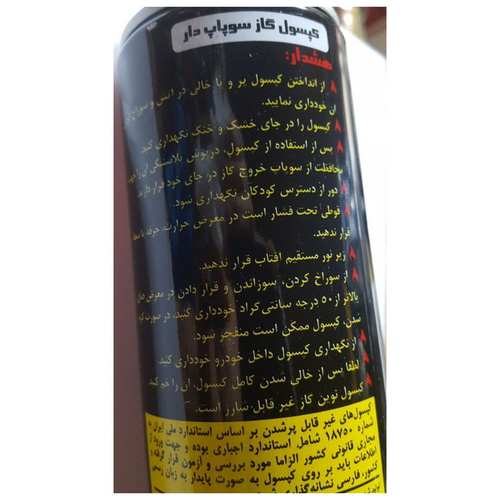 کپسول گاز سوپاپ دار
هشدار:
از انداختن کپسول پر و یا خالی در آتش و سوراخ
آن خودداری نمایید.
کپسول را در جای خشک و خنک نگهداری کنید
پس از استفاده از کپسول، درپوش پلاستیکی آن را جهت
محافظت از سوپاپ خروج گاز در جای خود قرار دارید
دور از دسترس کودکان نگهداری شود.
قوطی تحت فشار است در معرض حرارت، جرقه یا شعله
قرار ندهید.
زیر نور مستقیم افتاب قرار ندهید.
از سوراخ کردن، سوزاندن و قرار دادن در معرض دمای
بالاتر از ۵۰ درجه سانتی گراد خودداری کنید، در صورت
شدن، کپسول ممکن است منفجر شود.
از نگهداری کپسول داخل خودرو خودداری کنید
لطفا پس از خالی شدن کامل کپسول، آن را خم کنید
کپسول نوین گاز غیر قابل شارژ است.
کپسول‌های غیر قابل پرشدن بر اساس استاندارد ملی ایران به
شماره ۱۸۷۵۰ شامل استاندارد اجباری بوده و جهت ورود از
مجاری قانونی کشور الزاما مورد بررسی و آزمون قرار گرفته و
اطلاعات باید بر روی کپسول به صورت پایدار به زبان رسمی
کشور، فارسی نشانه‌گذاری